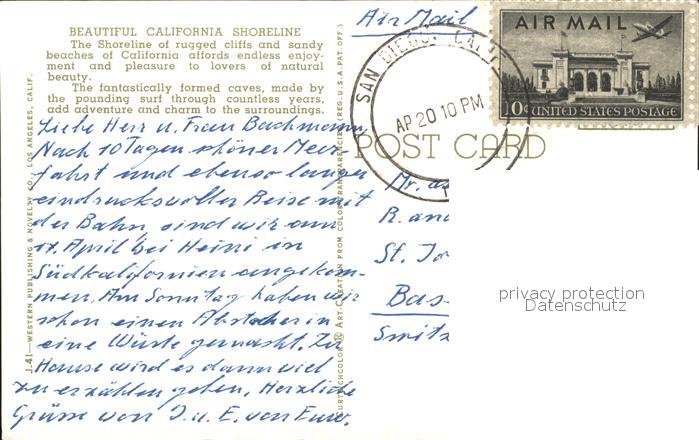 BEAUTIFUL CALIFORNIA SHORELINE
The Shoreline of rugged cliffs and sandy
beaches of California affords endless enjoy-
ment and pleasure to lovers of natural
beauty.
The fantastically formed caves, made by
the pounding surf through countless years,
add adventure and charm to the surroundings.
Liebe Herr u. Frau Bachmann,
Nach 10 Tagen schöner Meer-
fahrt und ebenso langer
eindrucksvoller Reise mit
der Bahn, sind wir am
April bei Heini in
Südkalifornien angekom-
men. Am Sonntag haben wir
schon einen Abstecher in
eine Wüste gemacht. Zu
Hause wird es dann viel
zu erzählen geben. Herzliche
Grüsse von J. u. E. von
J.41—WESTERN PUBLISHING & NOVELTY CO., LOS ANGELES, CALIF.
"CURTEICHCOLOR" ART-CREATION FROM COLOR TRANSPARENCY (REG. U.S.A. PAT. OFF.)
Air Mail
SAN DIEGO, CALIF
AP 20 10 PM
AIR MAIL
10¢ UNITED STATES POSTAGE
POST CARD
Mr.
R. and
St. Jo
Bas
Smitz
privacy protection
Datenschutz